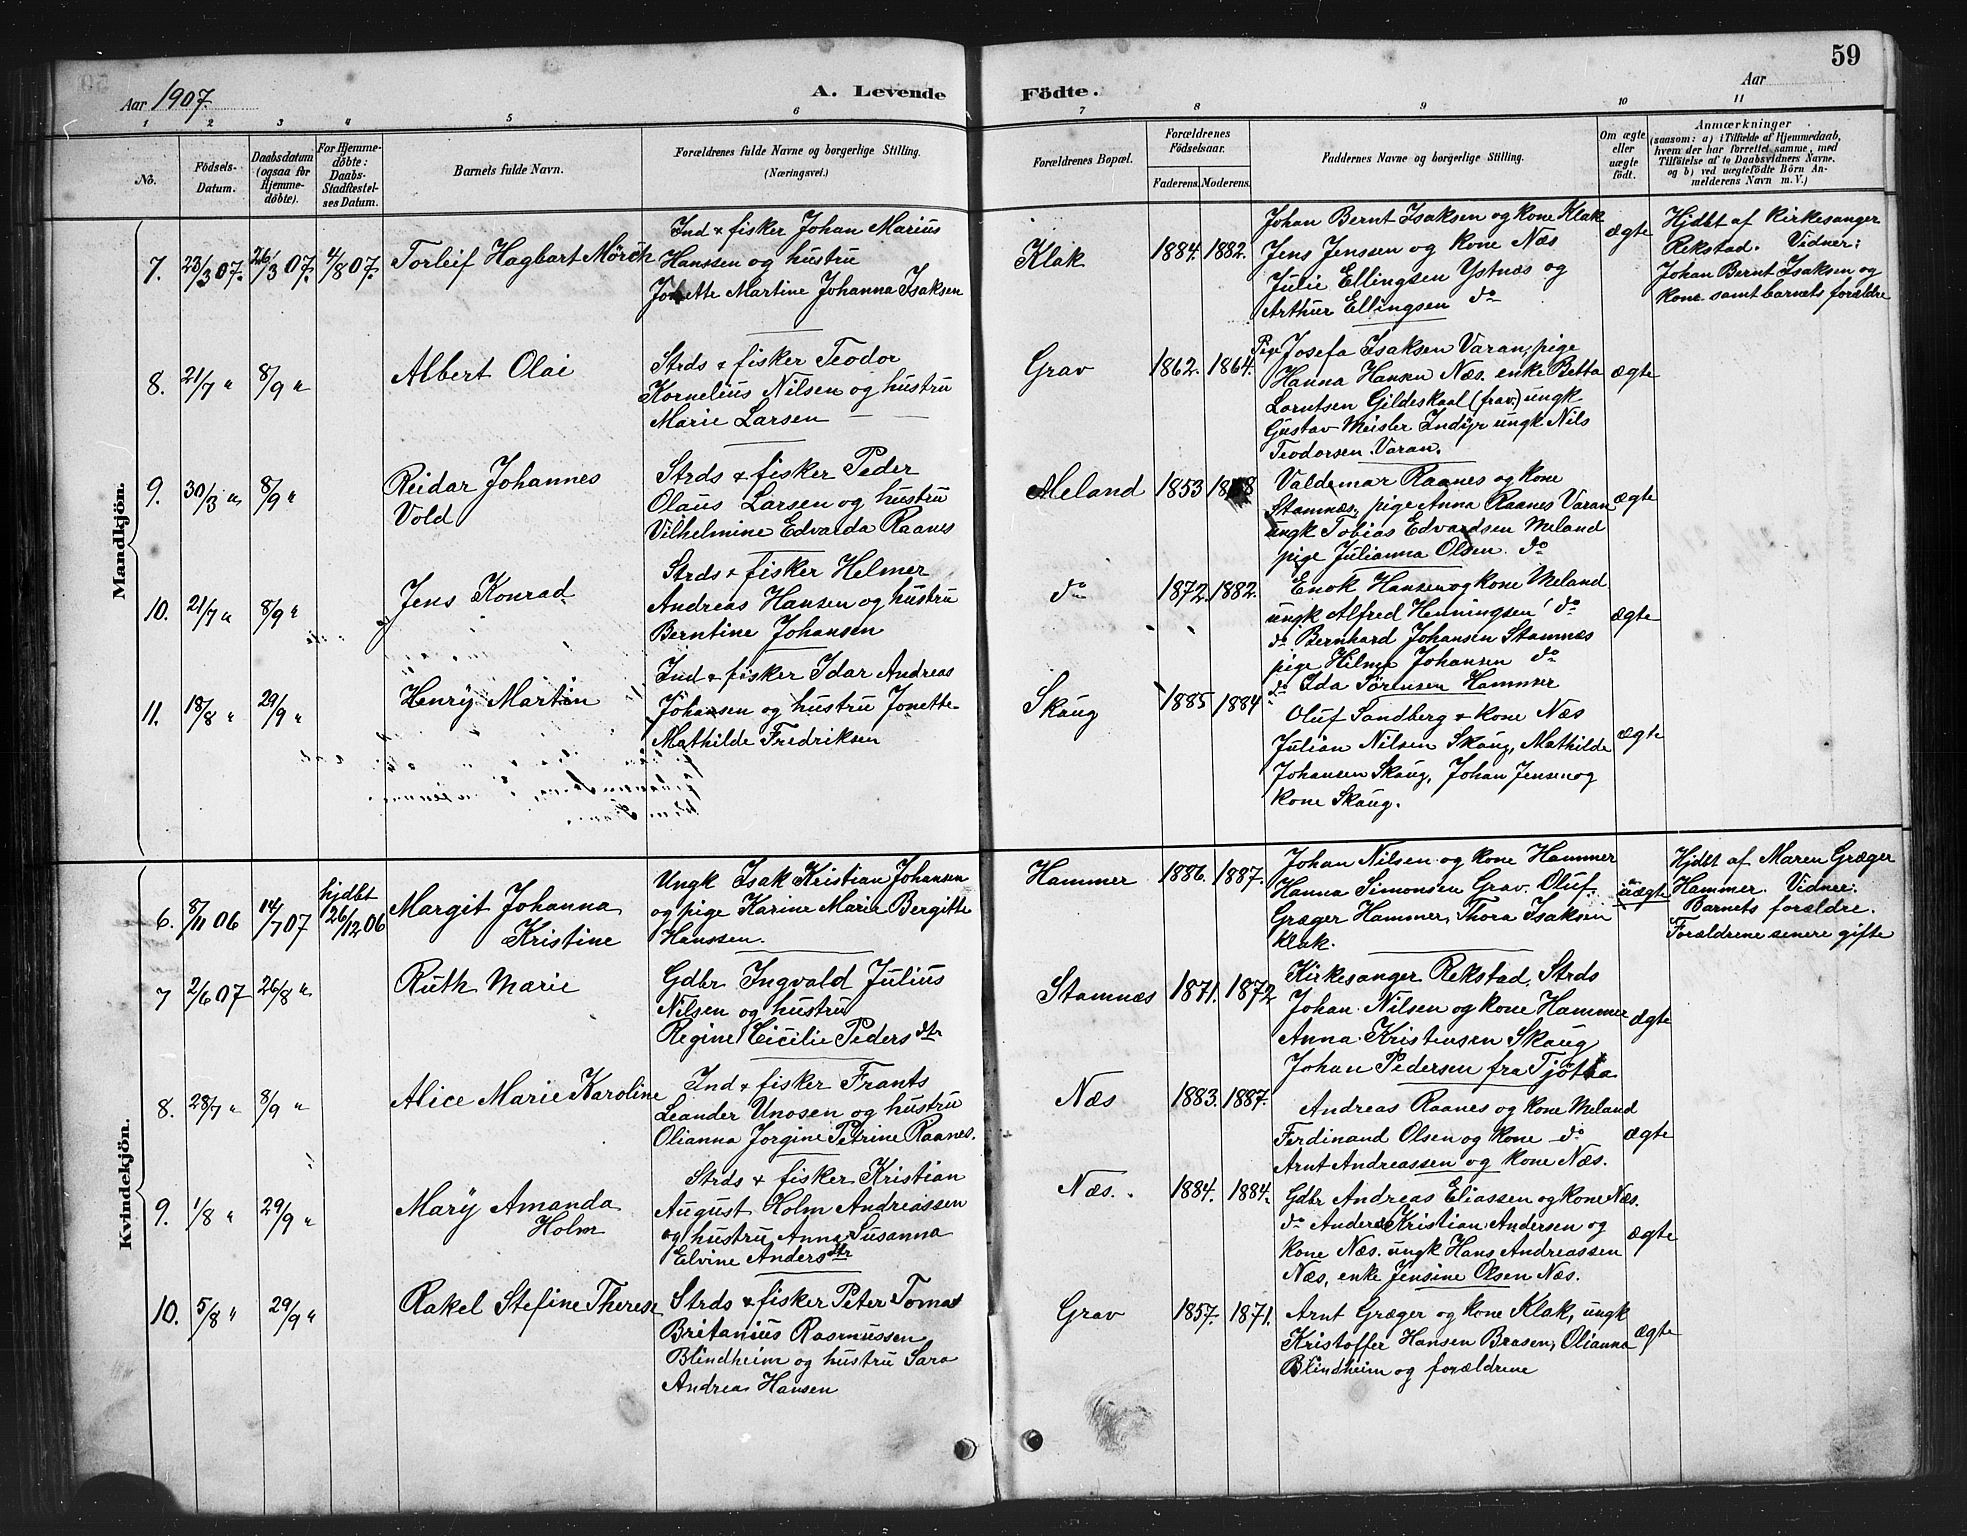 59
Aar 1907.
A. Levende Födte.
Aar
1 2 3 4 5 6 7 8 9 10 11
No.
Födsels-Datum.
Daabsdatum (ogsaa for Hjemme-döbte).
For Hjemme-döbte: Daabs-Stadfæstel-ses Datum.
Barnets fulde Navn.
Forældrenes fulde Navne og borgerlige Stilling.
(Næringsvei.)
Forældrenes Bopæl.
Forældrenes Födselsaar.
Faderens. Moderens.
Faddernes Navne og borgerlig Stilling.
Om ægte eller uægte födt.
Anmærkninger
(saasom: a) i Tilfælde af Hjemmedaab, hvem der har forrettet samme, med Tilföielse af to Daabsvidners Navne. og b) ved uægtefödte Börn An-melderens Navn m. V.)
Mandkjön.
7. 23/3 07. 26/3 07. 4/8 07. Torleif Hagbart Mörch
Ind & fisker Johan Marius
Hanssen og hustru
Jonette Martine Johanna Isaksen
Klak 1884. 1882.
Johan Bernt Isaksen og kone Klak
Jens Jensen og kone Næs
Julie Ellingsen Ystnæs og
Arthur Ellingsen do
ægte
Hjdbt af Kirkesanger
Rekstad. Vidner:
Johan Bernt Isaksen og
kone samt barnets forældre
8. 21/7 " 8/9 " Albert Olai
Strds & fisker Teodor
Kornelius Nilsen og hustru
Marie Larsen
Grav 1862. 1864.
Pige Josefa Isaksen Varan, pige
Hanna Hansen Næs. enke Betta
Lorntsen Gildeskaal (frav.) ungk
Gustav Meisler Indyr ungk Nils
Teodorsen Varan.
ægte
9. 30/3 " 8/9 " Reidar Johannes
Vold
Strds & fisker Peder
Olaus Larsen og hustru
Vilhelmine Edvarda Raanes
Meland 1853
Valdemar Raanes og kone
Stamnæs, pige Anna Raanes Varan
ungk Tobias Edvardsen Meland
pige Julianna Olsen. do
ægte
10. 21/7 " 8/9 " Jens Konrad
Strds & fisker Helmer
Andreas Hansen og hustru
Berntine Johansen
do 1872. 1882.
Enok Hansen og kone Meland
ungk Alfred Henningsen do
do Bernhard Johansen Stamnæs
pige Hilma Johansen do
do Ida Sörensen Hammer
ægte
11. 18/8 " 29/9 " Henry Martin
Ind & fisker Idar Andreas
Johansen og hustru Jonette
Mathilde Fredriksen
Skaug 1885 1884
Oluf Sandberg & kone Næs
Julian Nilsen Skaug, Mathilde
Johansen Skaug, Johan Jensen og
kone Skaug.
ægte
Kvindekjön.
6. 8/11 06 14/7 07 hjdbt 26/12 06 Margit Johanna
Kristine
Ungk Isak Kristian Johansen
og pige Karine Marie Bergitte
Hanssen.
Hammer 1886. 1887.
Johan Nilsen og kone Hammer
Hanna Simonsen Grav. Oluf
Græger Hammer, Thora Isaksen
Klak.
uægte
Hjdbt af Maren Græger
Hammer. Vidner:
Barnets forældre.
Forældrene senere gifte
7 2/6 07 26/8 " Ruth Marie
Gdbr Ingvald Julius
Nilsen og hustru
Regine Cicilie Peders dtr
Stamnæs 1871. 1872
Kirkesanger Rekstad, Strds
Johan Nilsen og kone Hammer
Anna Kristensen Skaug
Johan Pedersen fra Tjötta
ægte
8. 28/7 " 8/9 " Alice Marie Karoline
Ind & fisker Frants
Leander Unosen og hustru
Olianna Jorgine Petrine Raanes.
Næs 1883. 1887.
Andreas Raanes og kone Meland
Ferdinand Olsen og kone do
Arnt Andreassen og kone Næs.
ægte
9. 1/8 " 29/9 " Mary Amanda
Holm
Strds & fisker Kristian
August Holm Andreassen
og hustru Anna Susanna
Elvine Anders dtr
Næs. 1884. 1884.
Gdbr Andreas Eliassen og kone Næs.
do Anders Kristian Andersen og
kone Næs. ungk Hans Andreassen
Næs, enke Jensine Olsen Næs.
ægte
10. 5/8 " 29/9 " Rakel Stefine Therese
Strds & fisker Peter Tomas
Britanius Rasmussen
Blindheim og hustru Sara
Andrea Hansen
Grav 1857. 1871.
Arnt Græger og kone Klak, ungk
Kristoffer Hansen Brasen, Olianna
Blindheim og forældrene
ægte